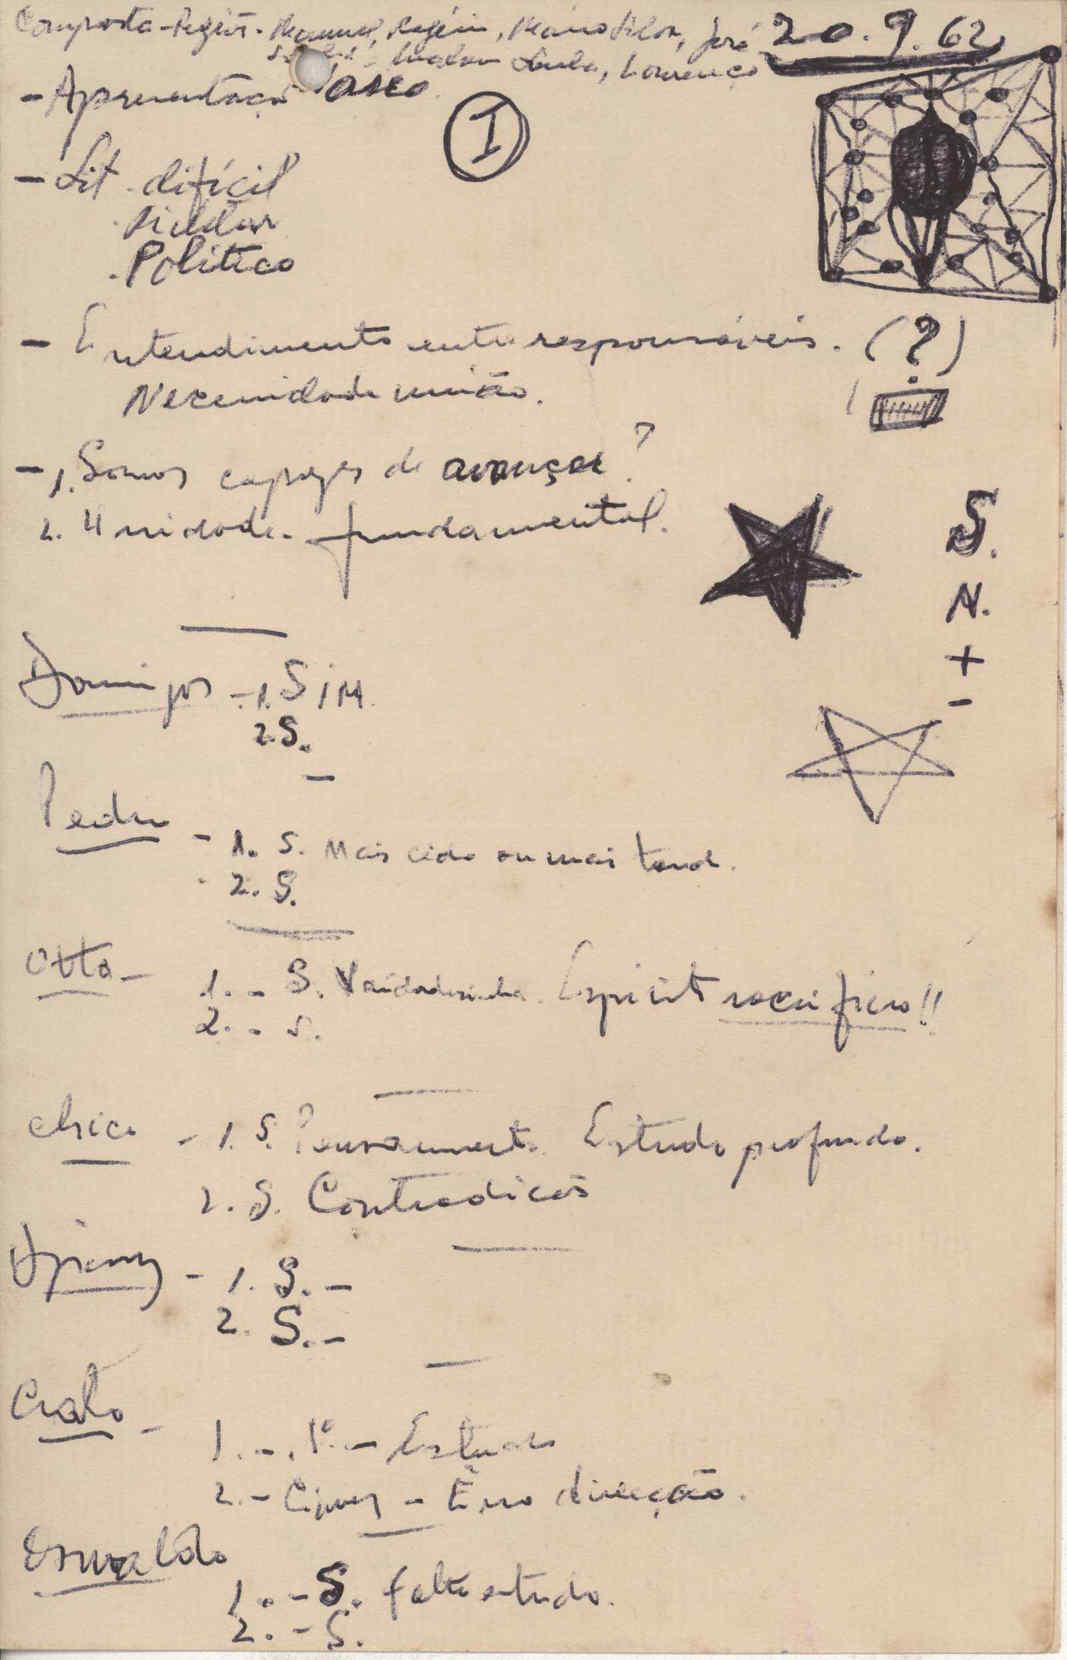 Manuel, Mário Silva, José 20.9.62
Lourenço
- Apresentação Vasco
I
- Sit. difícil
Político
- Entendimento entre responsáveis. (?)
Necessidade união.
- 1. Somos capazes de avançar?
2. Unidade - fundamental.
S.
N.
+
-
Domingos - 1. SIM
2. S.
Pedro - 1. S. Mais cedo ou mais tarde.
2. S.
Otto - 1. - S. Vaidadesinha. Espírito sacrifício!!
2. - S.
Chico - 1. S. Pensamento. Estudo profundo.
2. S. Contradição
- 1. S. -
2. S. -
- 1. - . - Estudo
2. - Ciúmes - Êrro direcção.
Osvaldo
1. - S. falta estudo.
2. - S.